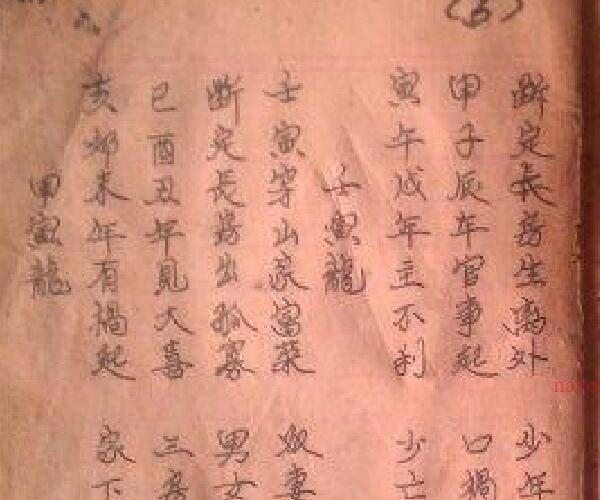 (5)
断定長房生离外 少年
甲子辰年官事起 口禍
寅午戌年主不利 少亡
壬寅龍
壬寅穿山家富荣 奴妻
断定長房出孤寡 男女
巳酉丑年見大喜 三房
亥卯未年有禍起 家下
甲寅龍